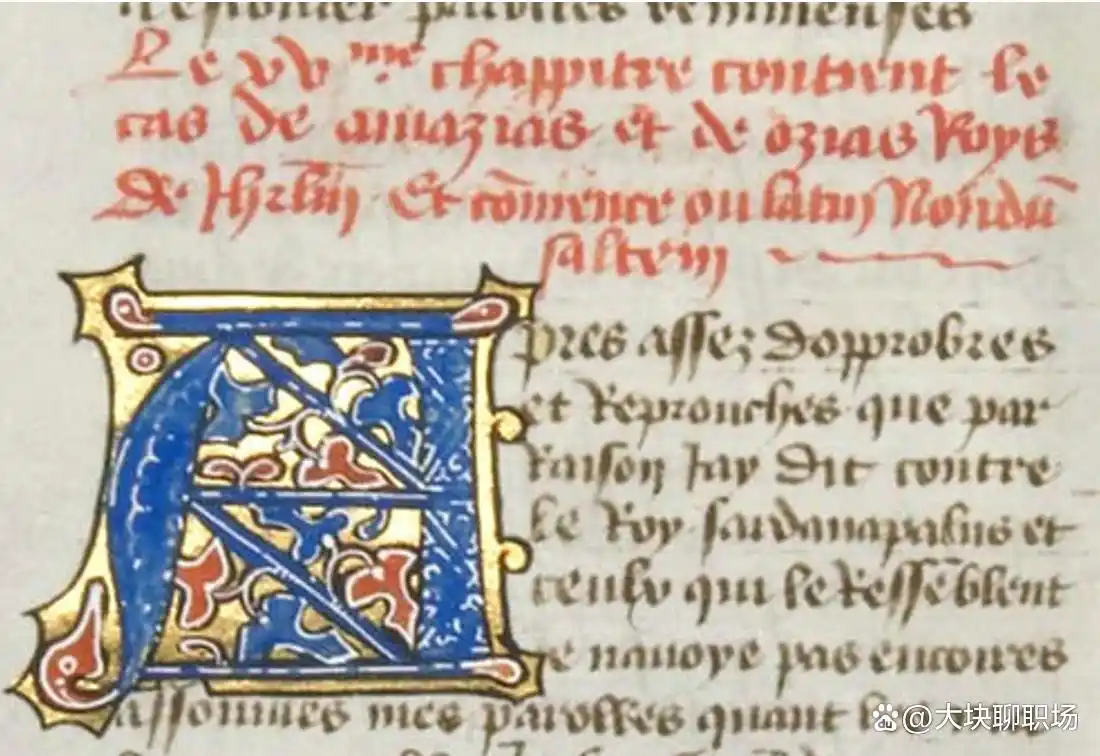 parolles
Le xv me chappitre contient le
cas de amazias et de ozias Roys
De Hirlm̄ Et cōmence ou latin Nondū
saltem
Apres assez dopprobres
et Reprouches que par
Raison Jay Dit contre
le Roy sardanapalus et
ceulx qui le Ressēblent
Je nauoye pas encores
assouuies mes parolles quant
@大块聊职场